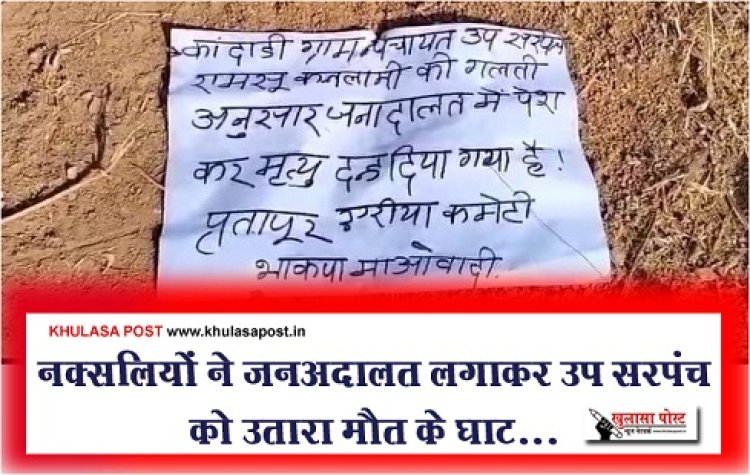 कांदाडी ग्राम पंचायत उप सरपंच
रामसू कचलामी की गलती
अनुसार, जनादालत में पेश
कर मृत्यु दन्ड दिया गया है!
प्रतापूर एरीया कमेटी
भाकपा माओवादी.
KHULASA POST www.khulasapost.in
नक्सलियों ने जनअदालत लगाकर उप सरपंच
को उतारा मौत के घाट...
खुलासा पोस्ट